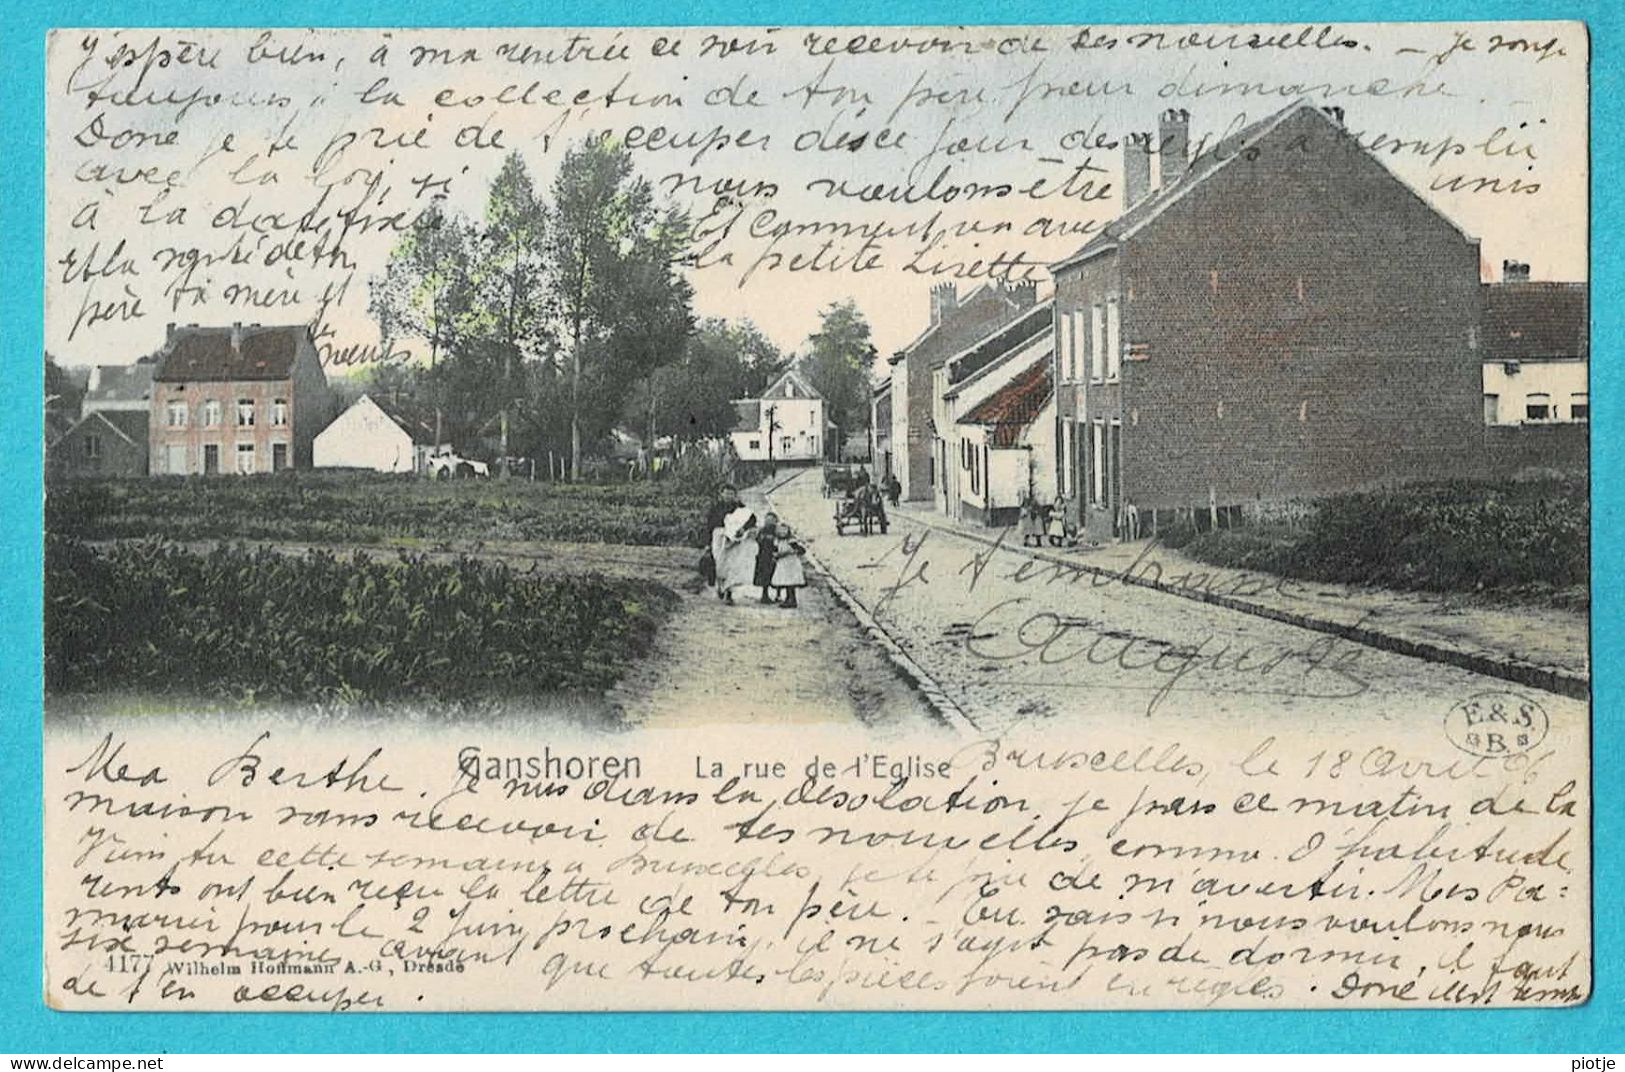 J'espère bien, à ma rentrée ce soir recevoir de tes nouvelles. – Je songe
toujours à la collection de ton père pour dimanche. –
Donc je te prie de t'occuper dès ce jour des règles à remplir
avec la loi, si nous voulons être unis
à la date fixée
Et comment va avec
la petite Lisette
Et la santé de ton
père ta mère et
tes
sœurs
Je t'embrasse
Auguste
E & S
B
Ganshoren La rue de l'Eglise
Bruxelles, le 18 Avril 06
Ma Berthe. Je suis dans la désolation, je pars ce matin de la
maison sans recevoir de tes nouvelles, comme d'habitude.
Viens-tu cette semaine à Bruxelles, je te prie de m'avertir. Mes Pa=
rents ont bien reçu la lettre de ton père. – Tu sais si nous voulons nous
marier pour le 2 Juin prochain, il ne s'agit pas de dormir, il faut
six semaines avant que toutes les pièces soient en règles. Donc il est temps
de t'en occuper.
4177 Wilhelm Hoffmann A.-G., Dresde
piotje